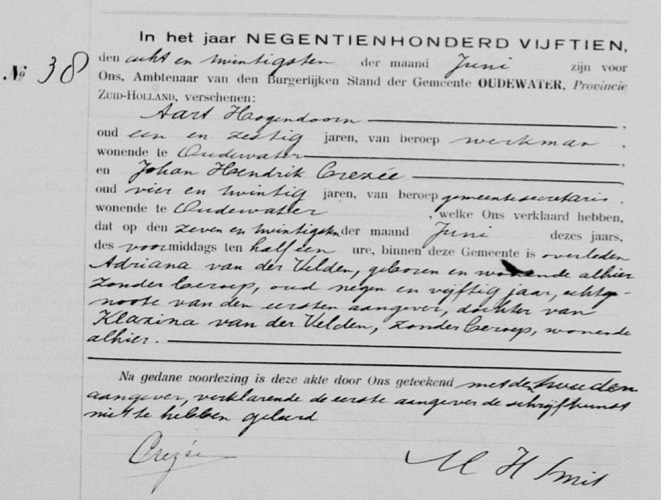 In het jaar NEGENTIENHONDERD VIJFTIEN,
№ 38
den acht en twintigsten der maand Juni zijn voor
Ons, Ambtenaar van den Burgerlijken Stand der Gemeente OUDEWATER, Provincie
ZUID-HOLLAND, verschenen:
Aart Hoogendoorn,
oud een en zestig jaren, van beroep werkman,
wonende te Oudewater
en Johan Hendrik Crezée
oud vier en twintig jaren, van beroep gemeentesecretaris.
wonende te Oudewater, welke Ons verklaard hebben,
dat op den zeven en twintigsten der maand Juni dezes jaars,
des voormiddags ten half een ure, binnen deze Gemeente is overleden
Adriana van der Velden, geboren en wonende alhier
zonder beroep, oud negen en vijftig jaar, echtge-
noote van den eersten aangever, dochter van
Klazina van der Velden, zonder beroep, wonende
alhier.
Na gedane voorlezing is deze akte door Ons geteekend met den tweeden
aangever, verklarende de eerste aangever de schrijfkunst
niet te hebben geleerd
Crezée
M H Smit